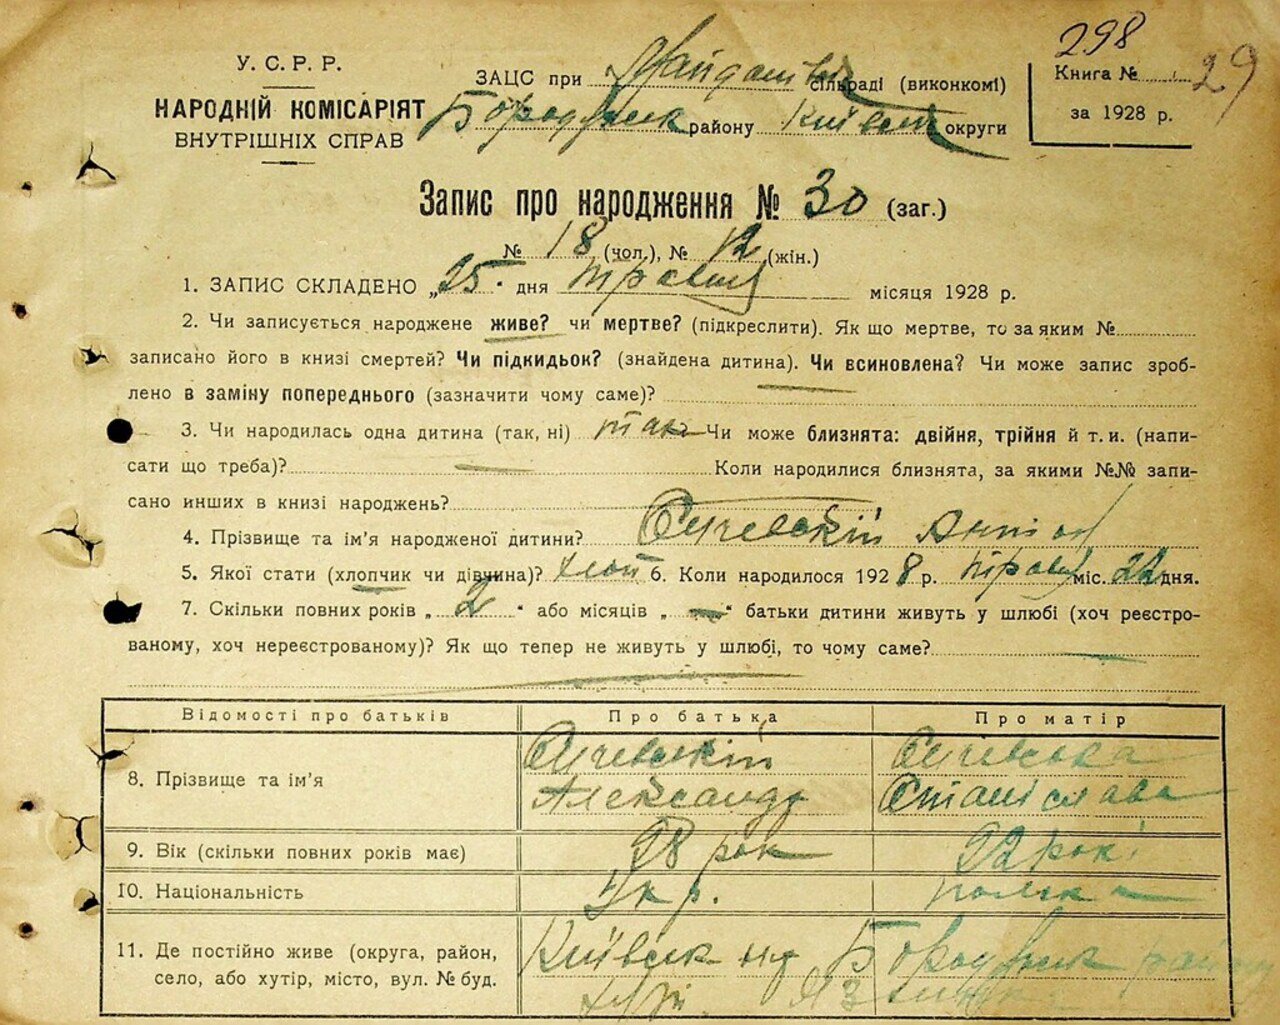 298
У. С. Р. Р.
НАРОДНІЙ КОМІСАРІЯТ
ВНУТРІШНІХ СПРАВ
ЗАЦС при сільраді (виконкомі)
району округи
Книга № 29
за 1928 р.
Запис про народження № 30 (заг.)
№ 18 (чол.), № 12 (жін.)
1. ЗАПИС СКЛАДЕНО „25" дня травня місяця 1928 р.
2. Чи записується народжене живе? чи мертве? (підкреслити). Як що мертве, то за яким №
записано його в книзі смертей? Чи підкидьок? (знайдена дитина). Чи всиновлена? Чи може запис зроб-
лено в заміну попереднього (зазначити чому саме)?
3. Чи народилась одна дитина (так, ні) так Чи може близнята: двійня, трійня й т. и. (напи-
сати що треба)? Коли народилися близнята, за якими №№ запи-
сано инших в книзі народжень?
4. Прізвище та ім'я народженої дитини? Сичевскій Антон
5. Якої стати (хлопчик чи дівчина)? хлоп 6. Коли народилося 1928 р. травня міс. 22 дня.
7. Скільки повних років „ 2 " або місяців „ — " батьки дитини живуть у шлюбі (хоч реєстро-
ваному, хоч нереєстрованому)? Як що тепер не живуть у шлюбі, то чому саме?
Відомості про батьків Про батька Про матір
8. Прізвище та ім'я Сичевскій Александр Сичевська Станіслава
9. Вік (скільки повних років має) 28 рок 22 рокі
10. Національність Укр. полька
11. Де постійно живе (округа, район,
село, або хутір, місто, вул. № буд.